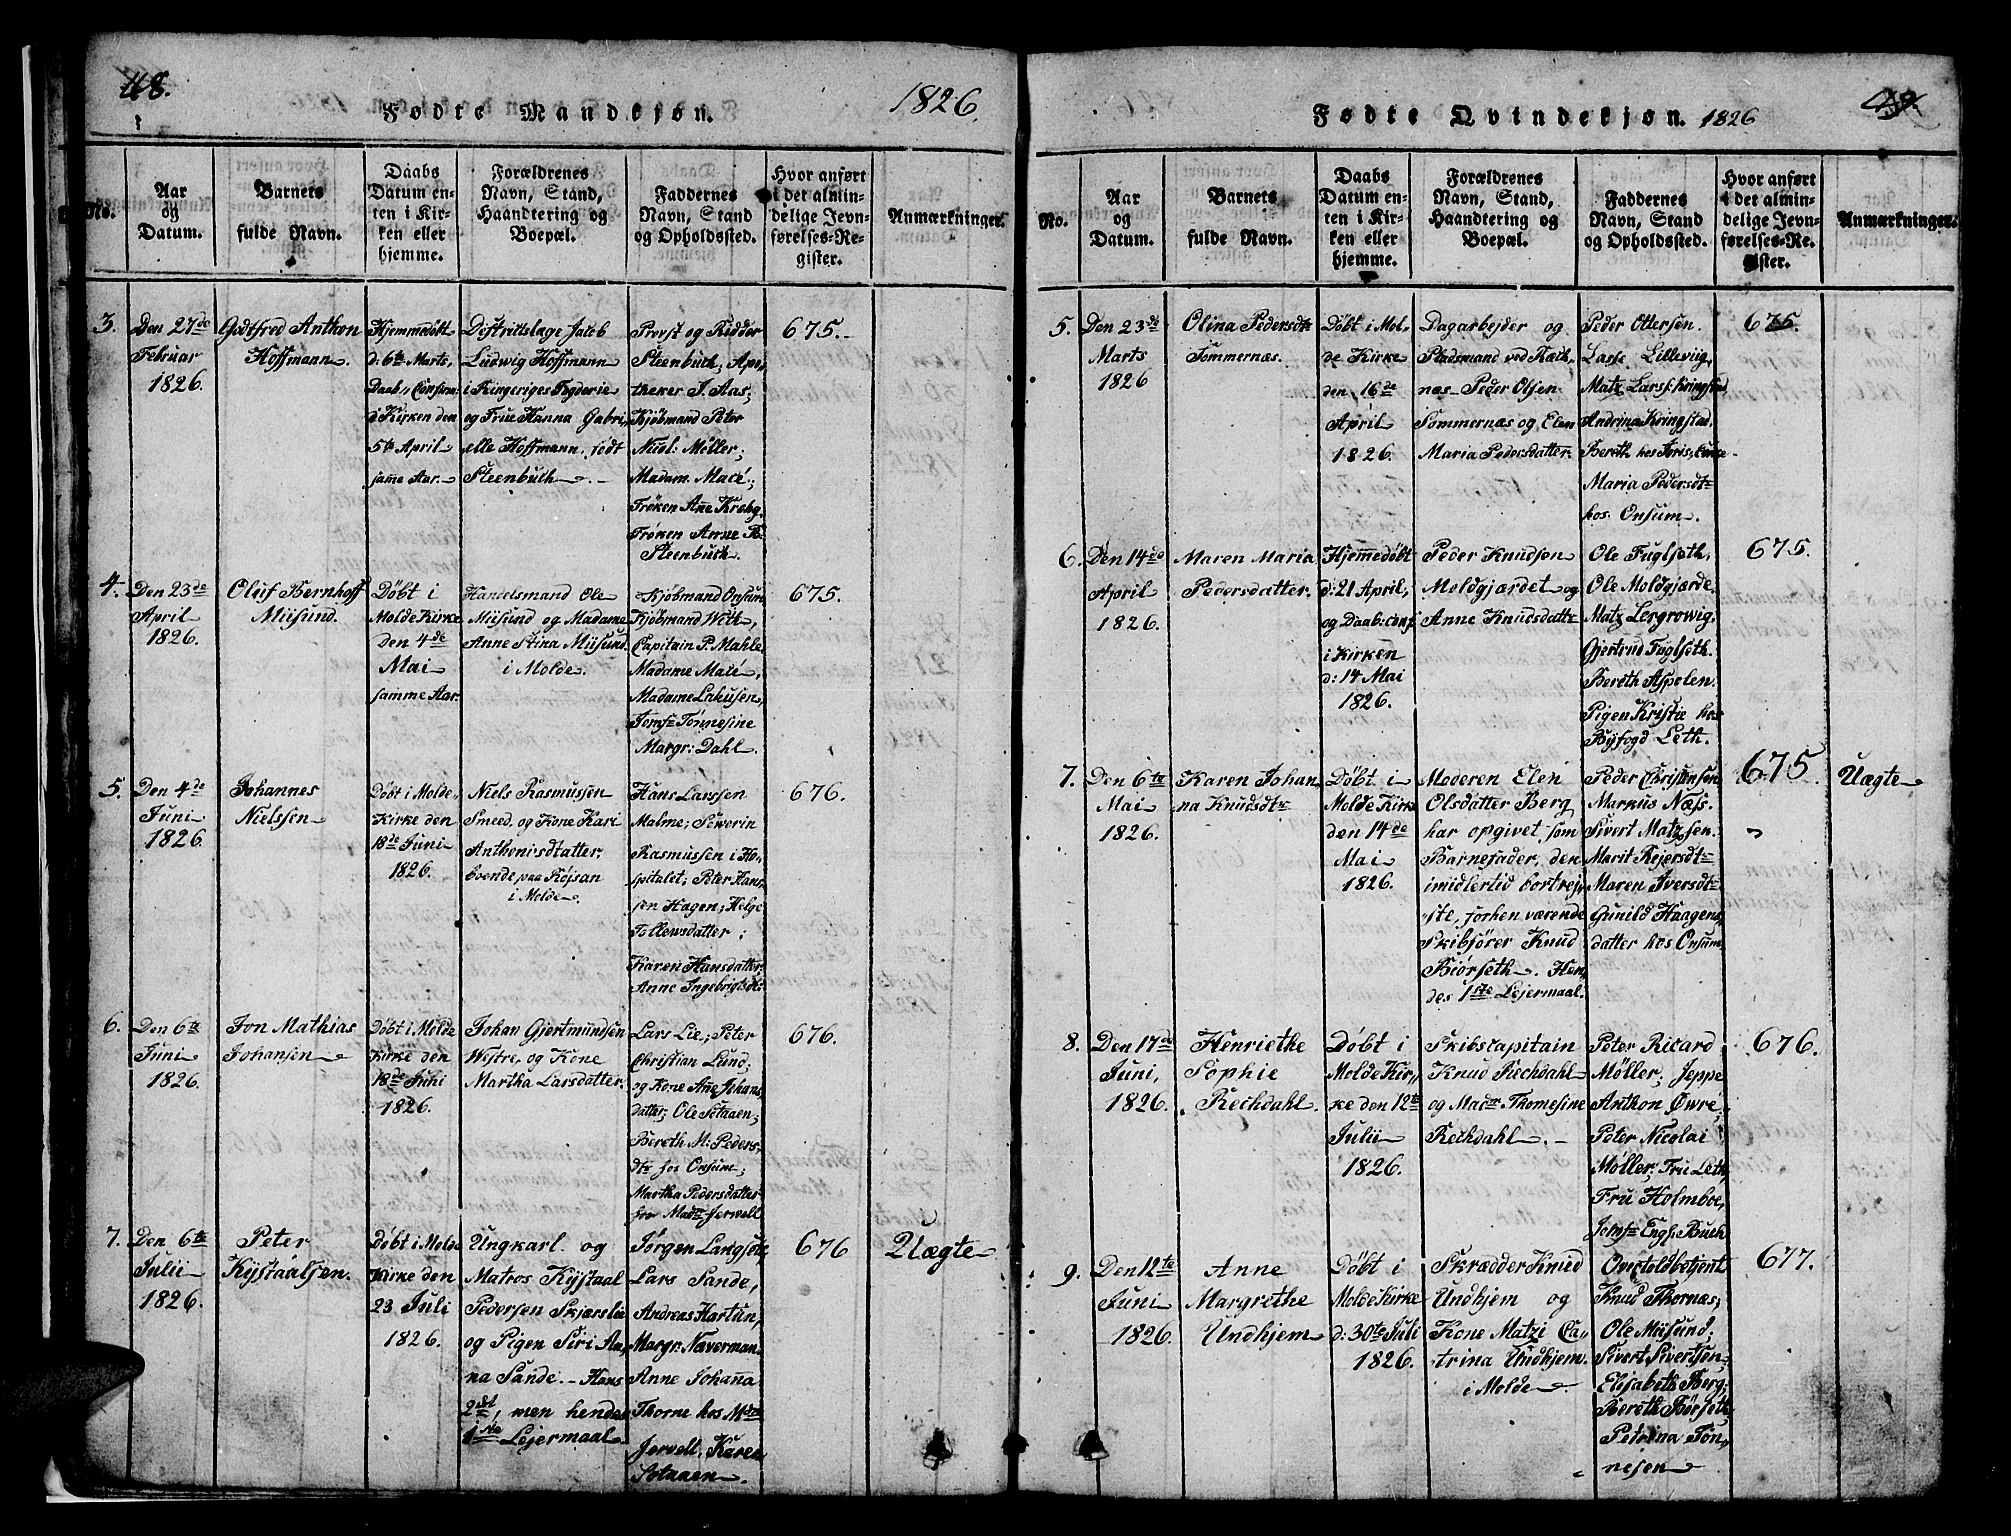 48.
Fødte Mandkjøn.
1826.
No.
Aar
og
Datum.
Barnets
fulde Navn.
Daabs
Datum en-
ten i Kir-
ken eller
hjemme.
Forældrenes
Navn, Stand,
Haandtering og
Boepæl.
Faddernes
Navn, Stand
og Opholdssted.
Hvor anført
i det almin-
delige Jevn-
førelses-Re-
gister.
Anmærkninger.
3.
Den 27de
Februar
1826.
Godtfred Anthon
Hoffmann.
Hjemmedøbt
d. 6te Marts,
Daab. Consirm:
i Kirken den
5te April
samme Aar.
Distriktslæge Jacob
Ludwig Hoffmann
i Ringeriges Fogderie
og Frue Hanna Gabri,
elle Hoffmann, født
Steenbuch.
Provst og Ridder
Steenbuch; Apo,
theker J. Aas;
Kjøbmand Peter
Nicol: Møller;
Madam. Macé;
Frøken Anne Krohg.
Frøken Anne B.
Steenbuch.
675.
4.
Den 23de
April
1826.
Oluf Bernhoff
Miisund.
Døbt i
Molde Kirke
den 4de
Mai
samme Aar.
Handelsmand Ole
Miisund og Madame
Anne Stina Miisund
i Molde.
Kjøbmand Onsum
Kjøbmand Weth,
Capitain P. Mahle
Madame Macé,
Madame Lakusen,
Jomfr Tønnesine
Margr: Dahl.
675.
5.
Den 4de
Juni
1826.
Johannes
Nielssen
Døbt i Molde
Kirke den
18de Juni
1826.
Niels Rasmussen
Smeed, og Kone Kari
Anthonisdtatter,
boende paa Røjsan
i Molde.
Hans Larssen
Malme; Sewerin
Rasmussen i Ho,
spitalet; Peter Han,
sen Hagen; Helge
Tollewsdatter;
Karen Hansdatter.
Anne Ingebrigtsdt:
676.
6.
Den 6te
Juni
1826.
Jon Mathias
Johansen
Døbt i Molde
Kirke den
18de Juni
1826.
Johan Gjertmundsen
Westre, og Kone
Martha Larsdatter.
Lars Lie; Peter
Christian Lund;
og Kone Ane Johans,
datter; Ole Sotaaen;
Bereth M: Peders,
dtr hos Onsum;
Martha Pedersdatter
hos Madme Jervell
676.
7.
Den 6te
Julii
1826.
Peter
Kystaalsen.
Døbt i Molde
Kirke den
23 Juli
1826.
Ungkarl og
Matros Kystaal
Pedersen Skjærslie
og Pigen Siri An,
na Sande. Hans
2det, men hendes
1ste Lejermaal
Jørgen Langset,
Lars Sande,
Andreas Hartun,
Margr: Næverman.
Anne Johanna
Thorne hos Mdme
Jervell, Karen
Sotaaen
676
Uægte
Fødte Qvindekjøn. 1826
49.
No.
Aar
og
Datum.
Barnets
fulde Navn.
Daabs
Datum en-
ten i Kir-
ken eller
hjemme.
Forældrenes
Navn, Stand,
Haandtering og
Boepæl.
Faddernes
Navn, Stand
og Opholdssted.
Hvor anført
i det almin-
delige Jevn-
førelses-Re-
gister.
Anmærkninger.
5.
Den 23de
Marts
1826
Olina Pedersdtr
Sommernæs.
Døbt i Mol,
de Kirke
den 16de
April
1826.
Dagarbejder og
Pladsmand ved Ræk,
næs Peder Olsen
Sommernæs og Elen
Maria Pedersdatter.
Peder Ottersen.
Lasse Lillevig,
Matz Lars: Kringstad
Andrina Kringstad,
Bereth hos
Maria Pedersdtr
hos. Onsum.
675.
6.
Den 14de
April
1826.
Maren Maria
Pedersdatter.
Hjemedøbt
d: 21 April,
og Daab: conf
i Kirken
d: 14 Mai
1826.
Peder Knudsen
Moldgjærdet og
Anne Knudsdatter
Ole Fuglseth,
Ole Moldgjærde,
Matz Lergrowig,
Gjertrud Fuglseth.
Bereth Aspelen.
Pigen Kristie hos
Byfogd Leth.
675.
7.
Den 6te
Mai
1826.
Karen Johan
na Knudsdtr
Døbt i
Molde Kirke
den 14de
Mai
1826.
Moderen Elen
Olsdatter Berg,
har opgivet som
Barnefader, den
imidlertid bortrej,
ste, forhen værende
Skibsfører Knud
Biørseth. Hen,
des 1ste Lejermaal.
Peder Christensen
Markus Næss.
Sivert Matzsen.
Marit Rejersdtr
Maren Iversdtr
Gunild Haagens,
datter hos Onsum
675
Uægte
8.
Den 17de
Juni,
1826.
Henriethe
Sophie
Rechdahl.
Døbt i
Molde Kir,
ke den 12te
Julii
1826.
Skibscapitain
Knud Rechdahl
og Madme Thomesine
Rechdahl.
Peter Ricard
Møller; Jeppe
Anthon Øwre,
Peter Nicolai
Møller; Fru Leth
Fru Holmboe,
Jomfr Eng. Buch
676.
9.
Den 12te
Juni
1826.
Anne
Margrethe
Undhjem
Døbt i
Molde Kirke
d: 30te Juli
1826.
Skrædder Knud
Undhjem og
Kone Matzi Ca,
trina Undhjem.
i Molde.
Overtoldbetjent
Knud Thornæs;
Ole Miisund;
Sivert Sivertsen
Elisabeth Berg;
Bereth Børseth;
Petrina Tøn,
nesen
677.